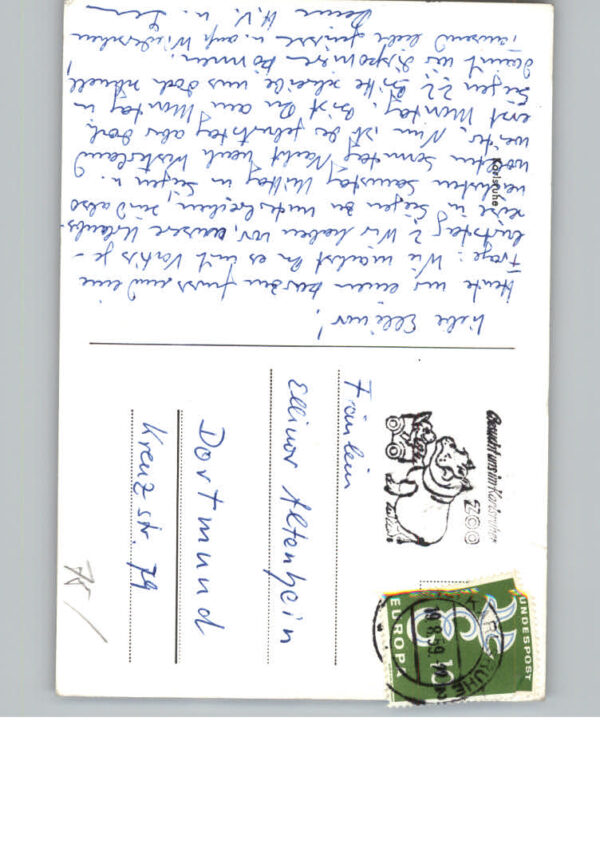 Liebe Ellinor!
Heute nur einen kurzen Gruss und eine
Frage: Wie machst Du es mit Vatis Ge-
burtstag? Wir haben vor, unsere Urlaubs-
reise in Siegen zu unterbrechen, sind also
nächsten Samstag Mittag in Siegen u.
wollten Sonntag Nacht nach Westerland
weiter. Nun ist der Geburtstag aber doch
erst Montag. Bist Du am Montag in
Siegen?? Bitte schreibe uns doch schnell,
damit wir disponieren können.
Tausend liebe Grüsse u. auf Wiedersehen
Deine H.V. u.
Karlsruhe
Fräulein
Ellinor Altenhein
Dortmund
Kreuzstr. 79
Besucht uns im Karlsruher
ZOO
KARLSRUHE
19.8.59
EUROPA
10
BUNDESPOST